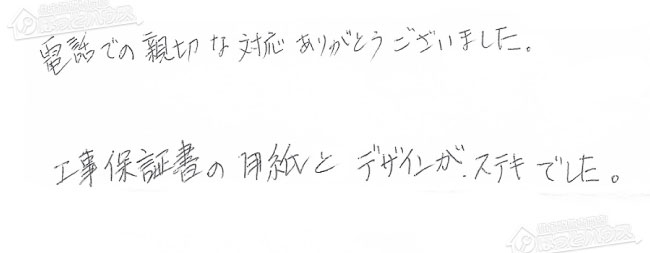 電話での親切な対応ありがとうございました。
工事保証書の用紙と デザインが、ステキでした。